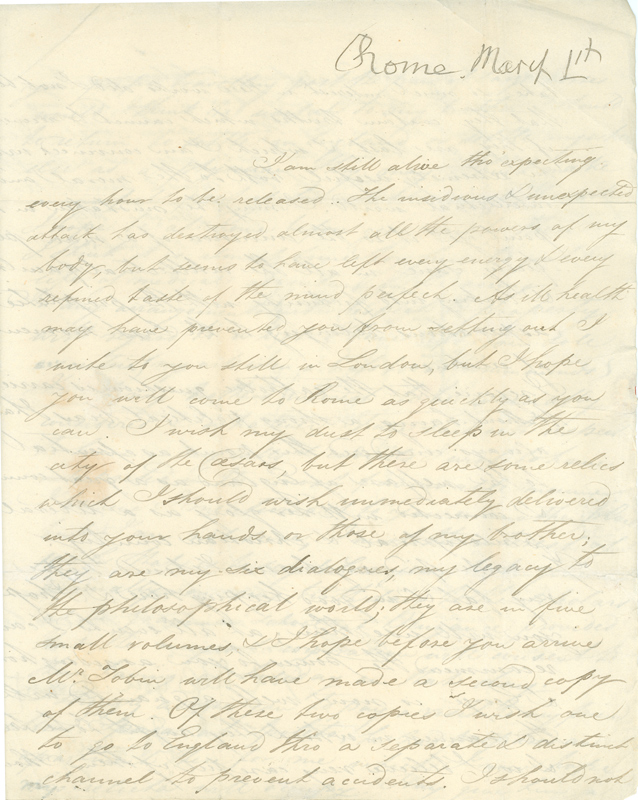 Rome. March 1st
I am still alive tho' expecting
every hour to be released. The insidious & unexpected
attack has destroyed almost all the powers of my
body, but seems to have left every energy & every
refined taste of the mind perfect. As ill health
may have prevented you from setting out I
write to you still in London, but I hope
you will come to Rome as quickly as you
can. I wish my dust to sleep in the
city of the Cæsars, but there are some relics
which I should wish immediately delivered
into your hands or those of my brother;
they are my six dialogues, my legacy to
the philosophical world; they are in five
small volumes, & I hope before you arrive
Mr. Tobin will have made a second copy
of them. Of these two copies I wish one
to go to England thro a separate & distinct
channel to prevent accidents. I should not